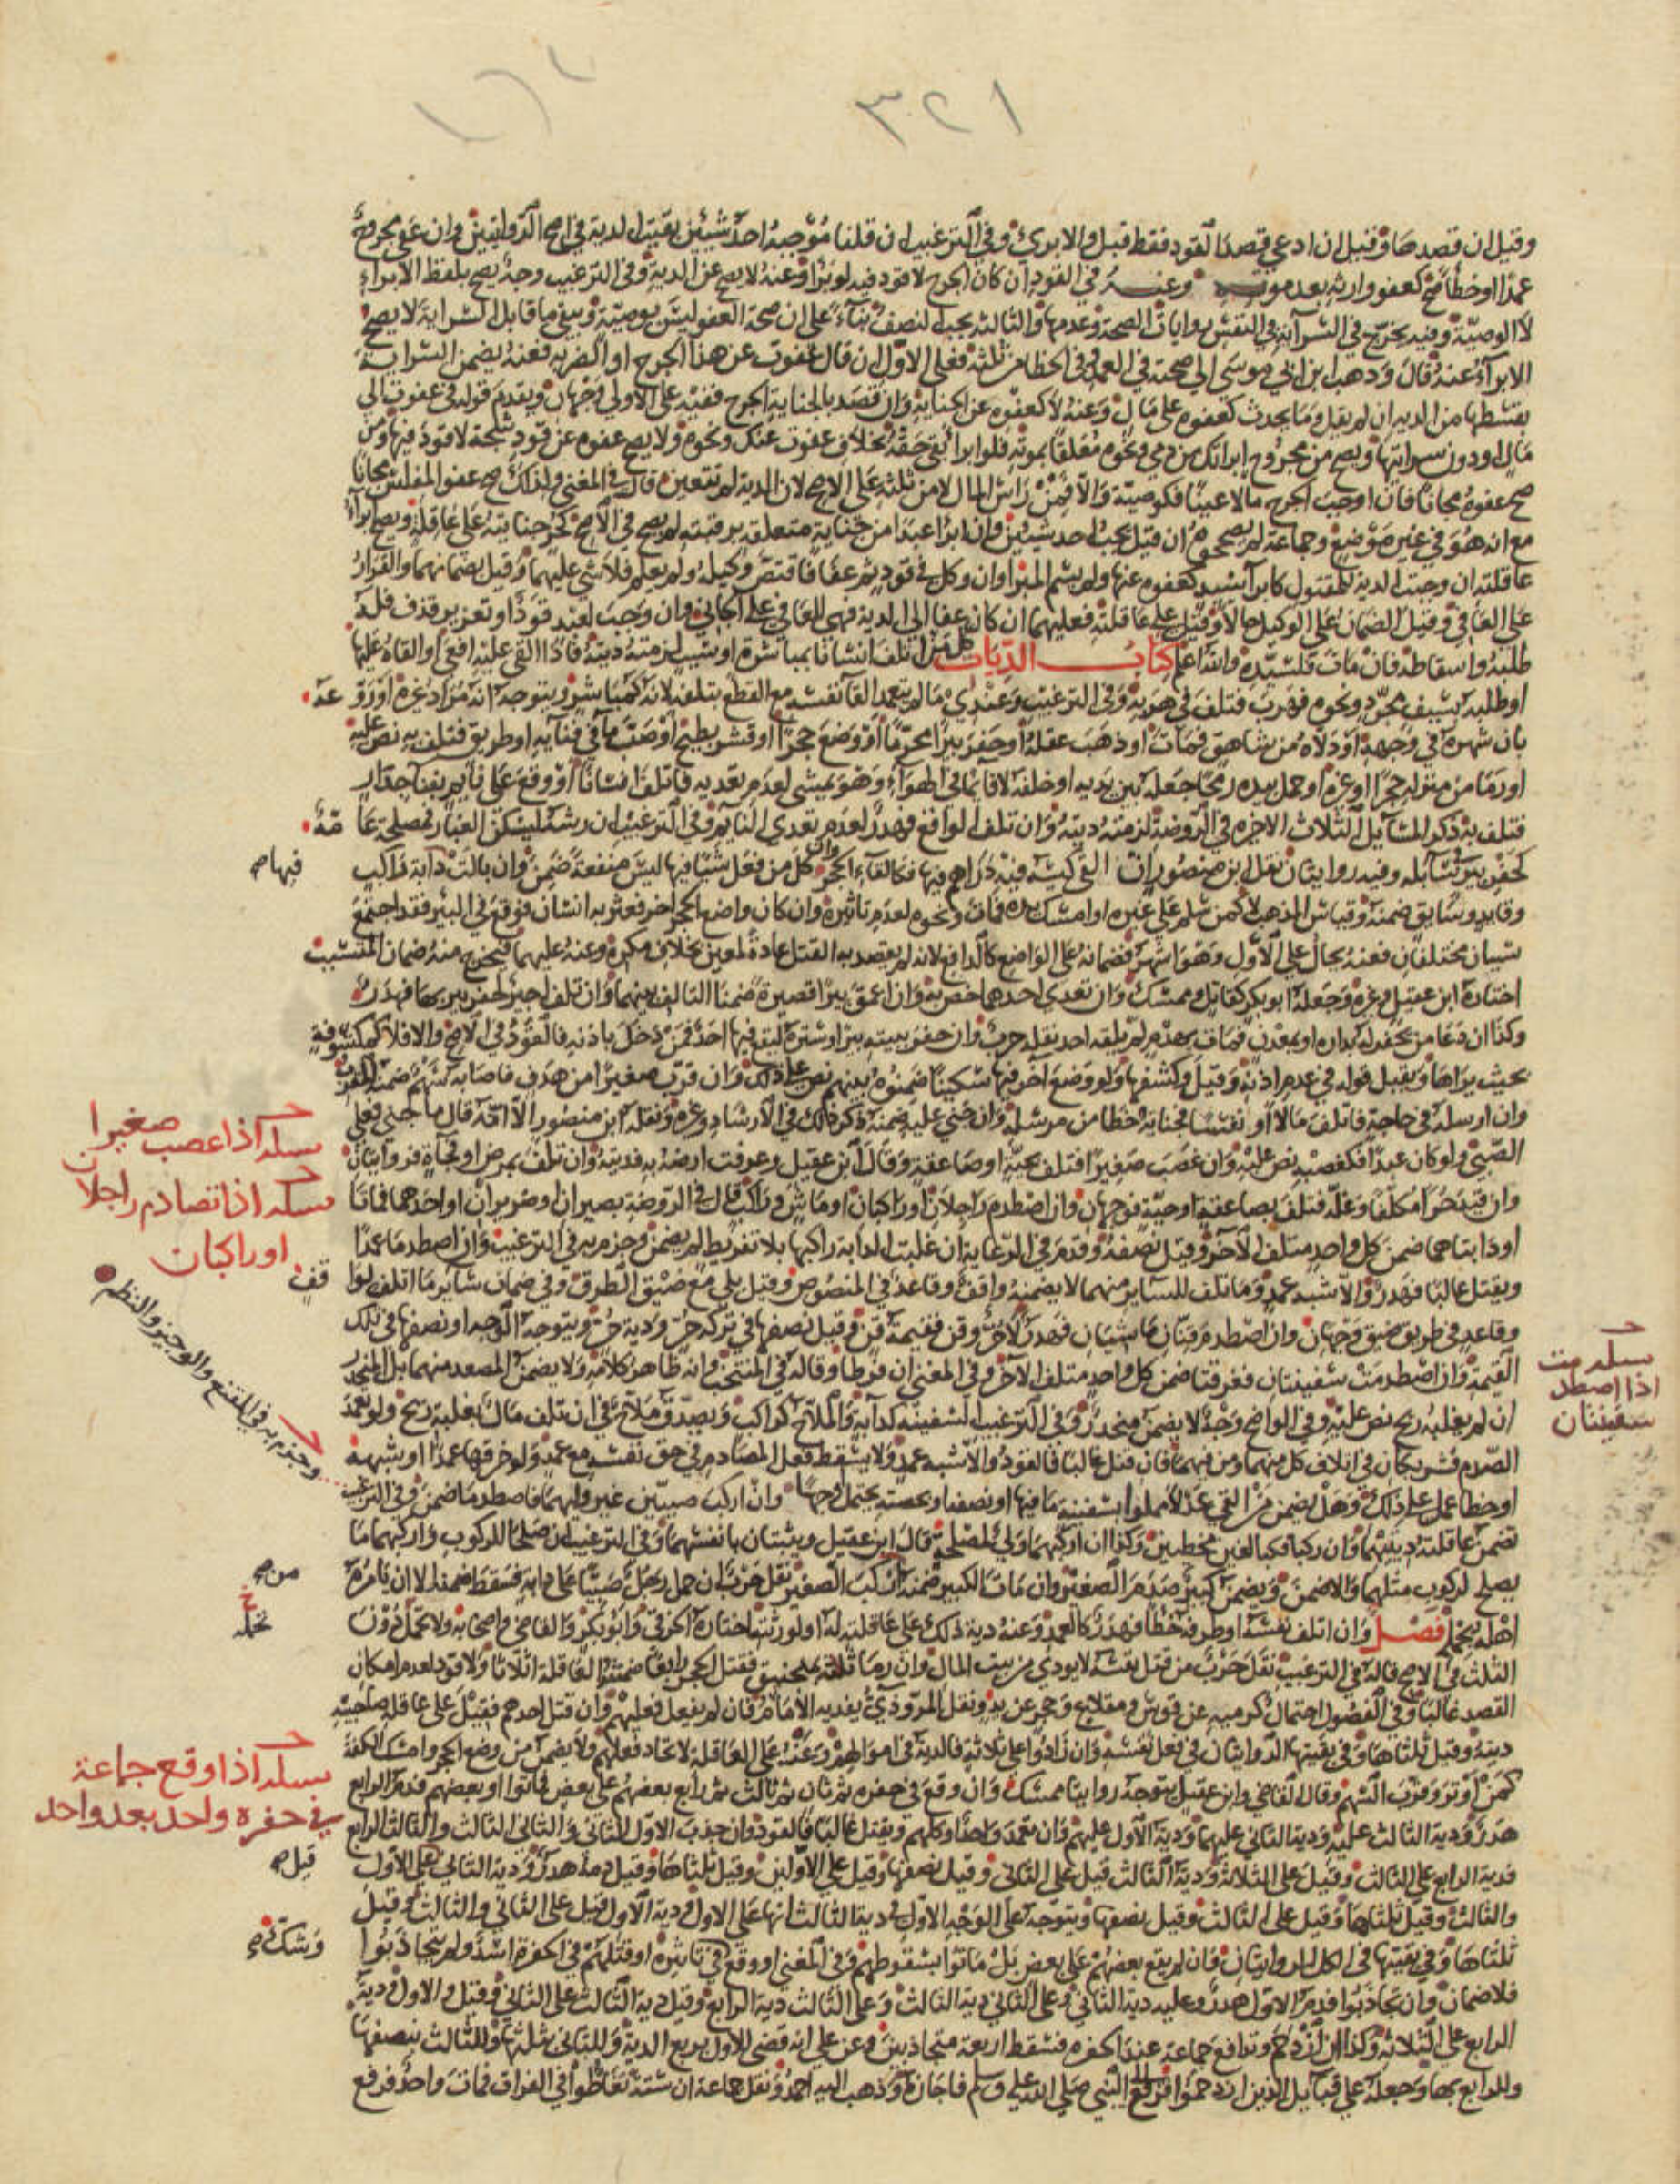 ٣٢١
وقيل ان قصدها وقيل ان ادعى قصد القود فقط قبل والا برئ وفي الترغيب ان قلنا موجبه احد شيئين بقيت الدية في اصح الروايتين وان عفى مجروح
عمدا او خطأ صح كعفو وارثه بعد موته وعنه في القود ان كان الجرح لا قود فيه لو برا وعنه لا يصح عن الدية وفي الترغيب وجه يصح بلفظ الابراء
لا الوصية وفيه يخرج في السراية في النفس روايات الصحة وعدمها والثالثة يجب النصف بناء على ان صحة العفو ليس بوصية ويبقى ما قابل السراية لا يصح
الابراء عنه قال وذهب ابن ابي موسى الى صحته في العمد وفي الخطا من ثلثه فعلى الاول ان قال عفوت عن هذا الجرح او الضربة فعنه يضمن السراية
بقسطها من الدية ان لم يقل وما يحدث كعفوه على مال وعنه لا كعفوه عن الجناية وان قصد بالجناية الجرح ففيه على الاولى وجهان ويقدم قوله في عفوت الى
مال او دون سرايتها ويصح من مجروح ابراتك من دمي ونحوه معلقا بموته فلو ابرا بقي حقه بخلاف عفوت عنك ونحوه ولا يصح عفوه عن قود شجة لا قود فيها ومن
صح عفوه مجانا فان اوجب الجرح مالا عينا فكوصية والا فمن راس المال لا من ثلثه على الاصح لان الدية لم تتعين قال في المغني ولذلك صح عفو المفلس مجانا
مع انه هو وفي غير موضع وجماعة لم يصححوه ان قيل يجب احد شيئين وان ابرا عبدا من جناية متعلقة برقبته لم يصح في الاصح كحر جنايته على عاقلة ويصح ابراء
عاقلته ان وجبت الدية للمقتول كابرا سيد كعفوه عنها ولم يسم المبرا وان وكل في قود ثم عفا فاقتص وكيله ولم يعلم فلا شي عليهما وقيل يضمانهما والقرار
على العافي وقيل الضمان على الوكيل حالا وقيل على عاقلته فعليهما ان كان عفا الى الدية فهي للعافي على الجاني وان وجب لعبد قود او تعزير قذف فله
طلبه واسقاطه فان مات فلسيده والله اعلم كتاب الديات كل من اتلف انسانا بمباشرة او سبب لزمته ديته فاذا القى عليه افعى او القاه عليها
او طلبه بسيف مجرد ونحوه فهرب فتلف في هربه وفي الترغيب وعندي ما لم يتعمد القا نفسه مع القطع بتلفه لانه كمباشر ويتوجه انه مراد غيره او روعه
بان شهره في وجهه او دلاه من شاهق فمات او ذهب عقله او حفر بيرا محرما او وضع حجرا او قشر بطيخ او صب ما في فنايه او طريق فتلف به نص عليه
او رما من منزله حجرا او غيره او حمل بيده رمحا جعله بين يديه او خلفه لا قايما في الهواء وهو يمشي لعدم تعديه فاتلف انسانا او وقع على نايم بفنا جدار
فتلف به ذكر المسايل الثلاث الاخيرة في الروضة لزمته ديته وان تلف الواقع فهدر لعدم تعدي النايم وفي الترغيب ان رشه ليسكن الغبار فمصلحة عامة
كحفر بير سابلة وفيه روايتان نقل ابن منصور ان القى كيسه فيه دراهم فيها فكالقاء الحجر وان كل من فعل شيئا فيها ليس منفعة ضمن وان بالت دابة راكب
فيها صح
وقايد وسايق ضمنه وقياس المذهب لا كمن سلم على غيره او امسك يده فمات ونحوه لعدم تاثيره وان كان واضع الحجر اخر فعثر به انسان فوقع في البير فقد اجتمع
سببان مختلفان فعنه يحال على الاول وهو اشهر فضمانه على الواضع كالدافع لانه لم يقصد به القتل عادة لمعين بخلاف مكره وعنه عليهما فيخرج منه ضمان المتسبب
اختاره ابن عقيل وغيره وجعله ابو بكر كقاتل وممسك وان تعدى احدهما خص به وان اعمق بيرا قصيرة ضمنا التالف بينهما وان تلف اجير لحفر بير بها فهدر
وكذا ان دعا من يحفر له بداره او بمعدن فمات بهدم لم يلقه احد نقله حرب وان حفر ببيته بيرا وستره ليقع فيها احد فمن دخل باذنه فالقود في الاصح والا فلا كمكشوفة
بحيث يراها ويقبل قوله في عدم اذنه وقيل وكشفها ولو وضع اخر فيها سكينا ضمنوه بينهم نص على ذلك وان قرب صغيرا من هدف فاصابه سهم ضمنه المقرب
وان ارسله في حاجة فاتلف مالا او نفسا فجنايته خطا من مرسله وان جني عليه ضمنه ذكر ذلك في الارشاد وغيره ونقله ابن منصور الا انه قال ما جنى فعلى
الصبي ولو كان عبدا فكغصبه نص عليه وان غصب صغيرا فتلف بحية او صاعقة وقال ابن عقيل وعرفت ارضه به فديته وان تلف بمرض او فجاة فروايتان
مسله اذا غصب صغيرا
وان قيد حرا مكلفا وغله فتلف بصاعقة او حية فوجهان وان اصطدم راجلان او راكبان او ماش وراكب قال في الروضة بصيران او ضريران او احدهما فماتا
مسله اذا تصادم راجلان
او راكبان
او دابتاهما ضمن كل واحد متلف الاخر وقيل نصفه وقدم في الرعاية ان غلبت الدابة راكبها بلا تفريط لم يضمن وجزم به في الترغيب وان اصطدما عمدا
ويقتل غالبا فهدر والا شبه عمد وما تلف للساير منهما لا يضمنه واقف وقاعد في المنصوص وقيل بلى مع ضيق الطرق وفي ضمان ساير ما اتلف لواقف
وقاعد في طريق ضيق وجهان وان اصطدم قنان ماشيان فهدر لا حر وقن فقيمة قن وقيل نصفها في تركة حر ودية حر ويتوجه الوجه او نصفها في تلك
القيمة وان اصطدمت سفينتان فغرقتا ضمن كل واحد متلف الاخر وفي المغني ان فرطا وقاله في المنتخب وانه ظاهر كلامه ولا يضمن المصعد منهما بل المنحدر
مسله
اذا اصطدمت
سفينتان
ان لم يغلبه ريح نص عليه وفي الواضح وجه لا يضمن منحدر وفي الترغيب السفينة كدابة والملاح كراكب ويصدق ملاح في ان تلف مال بغلبة ريح ولو تعمدا
الصدم فشريكان في اتلاف كل منهما ومن فيهما فان قتل غالبا فالقود والا شبه عمد ولا يسقط فعل المصادم في حق نفسه مع عمد ولو خرقها عمدا او شبهه
وجزم به في المقنع والوجيز والنظم
او خطا عمل على ذلك وهل يضمن من القى عدلا مملوا بسفينة ما فيها او نصفه او بحصته يحتمل اوجها وان اركب صبيين غير وليهما فاصطدما ضمن وفي الترغيب
تضمن عاقلته ديتهما وان ركبا فكبالغين مخطيين وكذا ان اركبهما ولي لمصلحة قال ابن عقيل ويثبتان بانفسهما وفي الترغيب ان صلحا للركوب واركبهما ما
يصلح لركوب مثلهما والا ضمن ويضمن كبير صدم الصغير وان مات الكبير ضمنه مركب الصغير نقل حرب ان حمل رجل صبيا على دابة فسقط ضمنه الا ان يامره
من صح
اهله بحمله فصل وان اتلف نفسه او طرفه خطا فهدر كالعمد وعنه دية ذلك على عاقلته له او لورثته اختاره الخرقي وابو بكر والقاضي واصحابه ولا تحمل دون
الثلث في الاصح قاله في الترغيب نقل حرب من قتل نفسه لا يودى من بيت المال وان رما ثلاثة بمنجنيق فقتل الحجر رابعا ضمنته العاقلة اثلاثا ولا قود لعدم امكان
القصد غالبا وفي الفصول احتمال كرميه عن قوس ومقلاع وحجر عن يد ونقل المروذي يفديه الامام فان لم يفعل فعليهم وان قتل احدهم فقيل على عاقلة صاحبيه
ديته وقيل ثلثاها وفي بقيتها الروايتان في فعل نفسه وان زادوا على ثلاثة فالدية في اموالهم وعنه على العاقلة لاتحاد فعلهم ولا يضمن من وضع الحجر وامسك الكفة
كمن اوتر وقرب السهم وقال القاضي وابن عقيل يتوجه روايتا ممسك وان وقع في حفرة ثم ثان ثم ثالث ثم رابع بعضهم على بعض فماتوا او بعضهم فدم الرابع
مسله اذا وقع جماعة
في حفرة واحد بعد واحد
هدر ودية الثالث عليه ودية الثاني عليهما ودية الاول عليهم فان تعمد واحد او كلهم ويقتل غالبا فالقود وان جذب الاول الثاني والثاني الثالث والثالث الرابع
فدية الرابع على الثالث وقيل على الثلاثة ودية الثالث قيل على الثاني وقيل نصفها وقيل على الاولين وقيل ثلثاها وقيل دمه هدر ودية الثاني على الاول
قيل صح
والثالث وقيل ثلثاها وقيل على الثالث وقيل نصفها ويتوجه على الوجه الاول في دية الثالث انها على الاول ودية الاول قيل على الثاني والثالث وقيل
ثلثاها وفي بقيتها في الكل الروايتان فان لم يقع بعضهم على بعض بل ماتوا بسقوطهم وفي المغني او وقع في تاثيره او قتلهم في الحفرة اسد ولم يتجاذبوا
وشك صح
فلا ضمان وان تجاذبوا فدم الاول هدر وعليه دية الثاني وعلى الثاني دية الثالث وعلى الثالث دية الرابع وقيل دية الثالث على الثاني وقيل والاول ودية
الرابع على الثلاثة وكذا ان ازدحم وتدافع جماعة عند الحفرة فسقط اربعة متجاذبين وعن علي انه قضى للاول بربع الدية وللثاني بثلثها وللثالث بنصفها
وللرابع بها وجعله على قبايل الذين ازدحموا فرفع الى النبي صلى الله عليه وسلم فاجازه وذهب اليه احمد ونقل جماعة ان ستة تغاطوا في الفرات فمات واحد فرفع